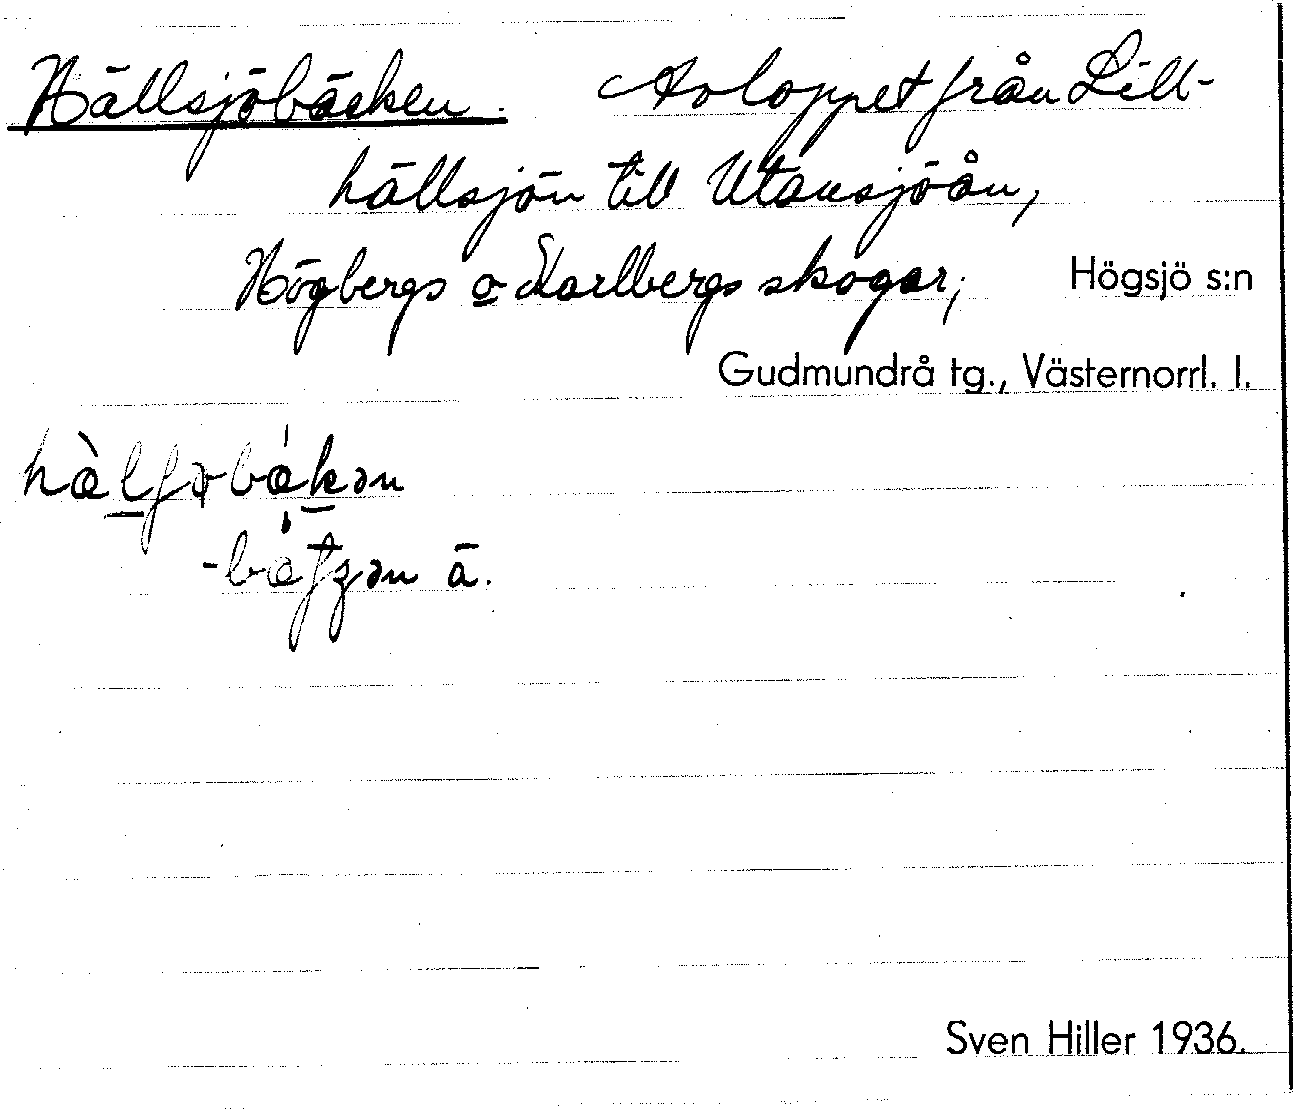 Hällsjöbäcken. Avloppet från Lill-
hällsjön till Utansjöån,
Högbergs o Karlbergs skogar; Högsjö s:n
Gudmundrå tg., Västernorrl. l.
-
ä.
Sven Hiller 1936.